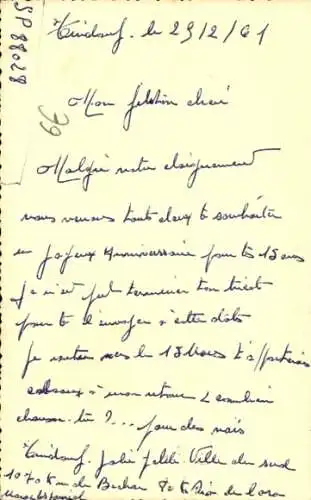 SP 88028
39
Tindouf. le 29/2/61
Mon filston chéri
Malgré notre éloignement
nous venons tout deux te souhaiter
un joyeux Anniversaire pour tes 15 ans
Je n'ai pu terminer ton tricot
pour te l'envoyer à cette date
Je rentre vers le 15 Mars t'apporterais
cadeaux à mon retour & combien
chausse-tu ?... pour des nails
Tindouf. Jolie petite Ville du sud
1070 km de Bechar